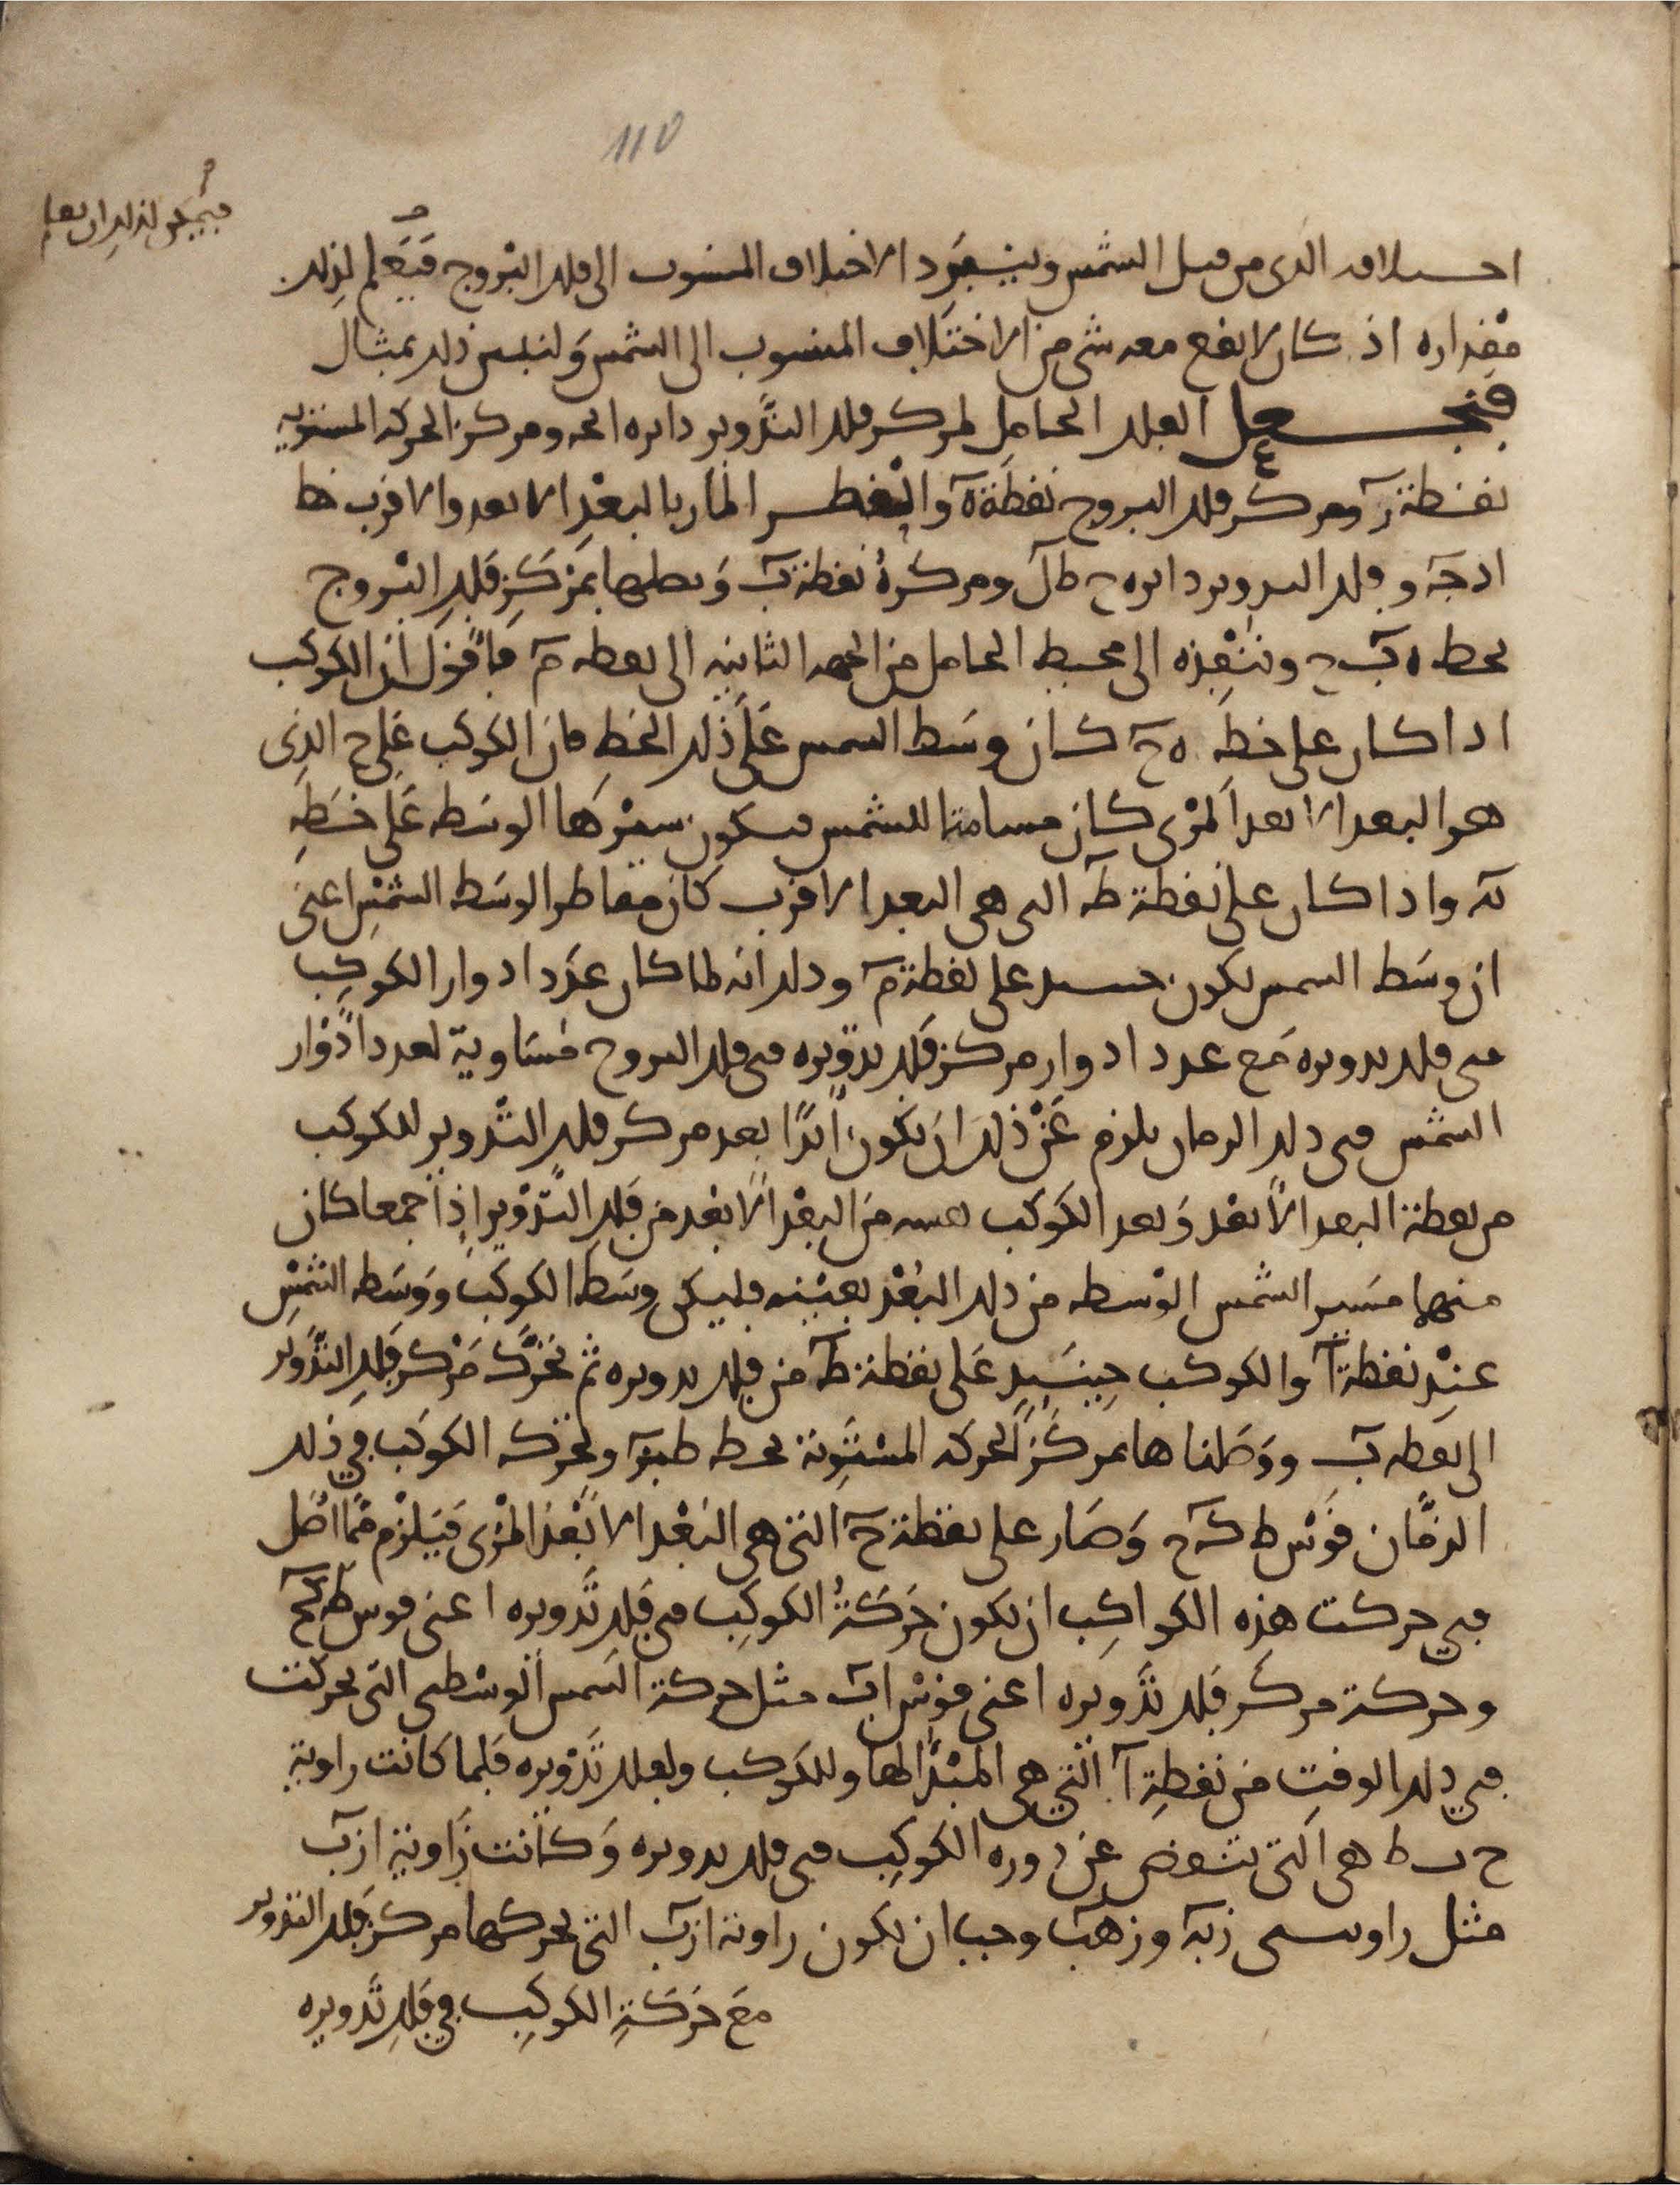 110
فيمكن لذلك ان يعلم
اختلافه الذي من قبل الشمس وينفرد الاختلاف المنسوب الى فلك البروج فيعلم لذلك
مقداره اذ كان لا يقع معه شي من الاختلاف المنسوب الى الشمس ولنلبس ذلك بمثال
فنجعل الفلك الحامل لمركز فلك التدوير دايره ومركز الحركه المستويه
نقطة ز ومركز فلك البروج نقطة ه والقطر المار بالبعد الابعد والاقرب خط
ا د ج وفلك التدوير دايره ح ط ل ومركزه نقطة ب ونصلها بمركز فلك البروج
بخط ه ب ح وننفذه الى محيط الحامل من الجهه الثانيه الى نقطه م فاقول ان الكوكب
اذا كان على خط ه ح كان وسط الشمس على ذلك الخط فان الكوكب على ح الذي
هو البعد الابعد المرى كان مسامتا للشمس فيكون سيرها الوسط على خط
واذا كان على نقطة ط التي هي البعد الاقرب كان مقاطرا لوسط الشمس اعني
ان وسط الشمس يكون حينيد على نقطة م وذلك انه لما كان عدد ادوار الكوكب
في فلك تدويره مع عدد ادوار مركز فلك تدويره في فلك البروج مساوية لعدد ادوار
الشمس في ذلك الزمان يلزم عن ذلك ان يكون ابدا بعد مركز فلك التدوير للكوكب
من نقطة البعد الابعد وبعد الكوكب نفسه من البعد الابعد من فلك التدوير اذا جمعا كان
منهما مسير الشمس الوسط من ذلك البعد بعينه فليكن وسط الكوكب ووسط الشمس
عند نقطة ا والكوكب حينيد على نقطة ط من فلك تدويره ثم تحرك مركز فلك التدوير
الى نقطه ب ووصلناها بمركز الحركه المستوية بخط ط ب ز وتحرك الكوكب في ذلك
الزمان قوس ط ك ح وصار على نقطة ح التي هي البعد الابعد المرى فيلزم مما اصل
في حركت هذه الكواكب ان يكون حركة الكوكب في فلك تدويره اعني قوس ط ك ح
وحركة مركز فلك تدويره اعني قوس ا ب مثل حركة الشمس الوسطى التي تحركت
في ذلك الوقت من نقطة ا التي هي المبدا لها وللكوكب ولفلك تدويره فلما كانت زاوية
ح ب ط هي التي تنقص عن دوره الكوكب في فلك تدويره وكانت زاوية ا ز ب
مثل زاويتي ز ب ه و ز ه ب وجب ان يكون زاوية ا ز ب التي تحركها مركز فلك التدوير
مع حركة الكوكب في فلك تدويره